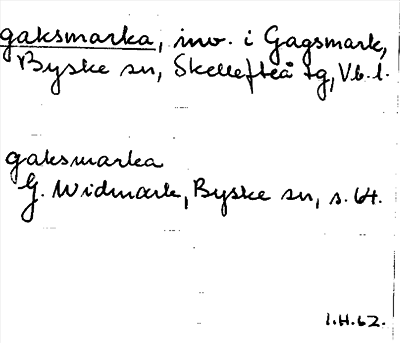 gaksmarka, inv. i Gagsmark,
Byske sn, Skellefteå tg, Vb. l.
gaksmarka
G. Widmark, Byske sn, s. 64.
I.H.62.